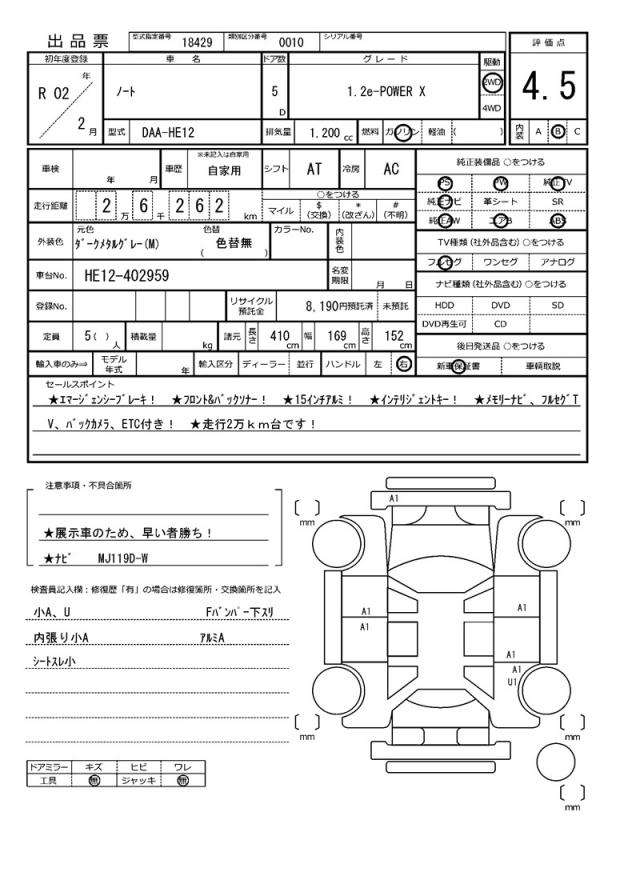 出品票 型式指定番号 18429 類別区分番号 0010 シリアル番号
初年度登録 車名 ドア数 グレード 駆動 評価点
R 02 年 2 月 ノート 5 D 1.2e-POWER X 2WD 4WD 4.5
型式 DAA-HE12 排気量 1.200 cc 燃料 ガソリン 軽油 ( ) 内装 A B C
車検 年 月 車歴 ※未記入は自家用 自家用 シフト AT 冷房 AC 純正装備品 ○をつける
PS PW 純正TV
走行距離 2 万 6 千 2 6 2 km ○をつける マイル $(交換) *(改ざん) #(不明) 純正ナビ 革シート SR
純正AW エアB ABS
外装色 元色 ダークメタルグレー(M) 色替 色替無 ( ) カラーNo. 内装色 TV種類 (社外品含む) ○をつける
フルセグ ワンセグ アナログ
車台No. HE12-402959 名変期限 月 日 ナビ種類 (社外品含む) ○をつける
登録No. リサイクル預託金 8,190円預託済 未預託 HDD DVD SD
DVD再生可 CD
定員 5( ) 人 積載量 kg 諸元 長さ 410 cm 幅 169 cm 高さ 152 cm 後日発送品 ○をつける
輸入車のみ⇒ モデル年式 年 輸入区分 ディーラー 並行 ハンドル 左 右 新車保証書 車輌取説
セールスポイント
★エマージェンシーブレーキ! ★フロント&バックソナー! ★15インチアルミ! ★インテリジェントキー! ★メモリーナビ、フルセグT
V、バックカメラ、ETC付き! ★走行2万km台です!
注意事項・不具合箇所
★展示車のため、早い者勝ち!
★ナビ MJ119D-W
検査員記入欄:修復歴「有」の場合は修復箇所・交換箇所を記入
小A、U Fバンパー下スリ
内張り小A アルミA
シートスレ小
ドアミラー キズ ヒビ ワレ
工具 無 ジャッキ 無
A1
[ ] mm [ ] mm
A1 A1
A1
A1
A1
U1
[ ] mm [ ] mm
[ ] mm